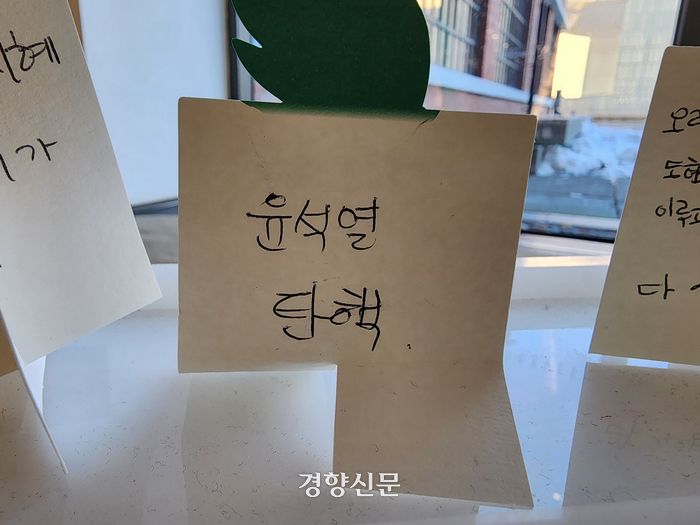 가
윤석열
탄핵.
오리
도현
이루
다
경향신문